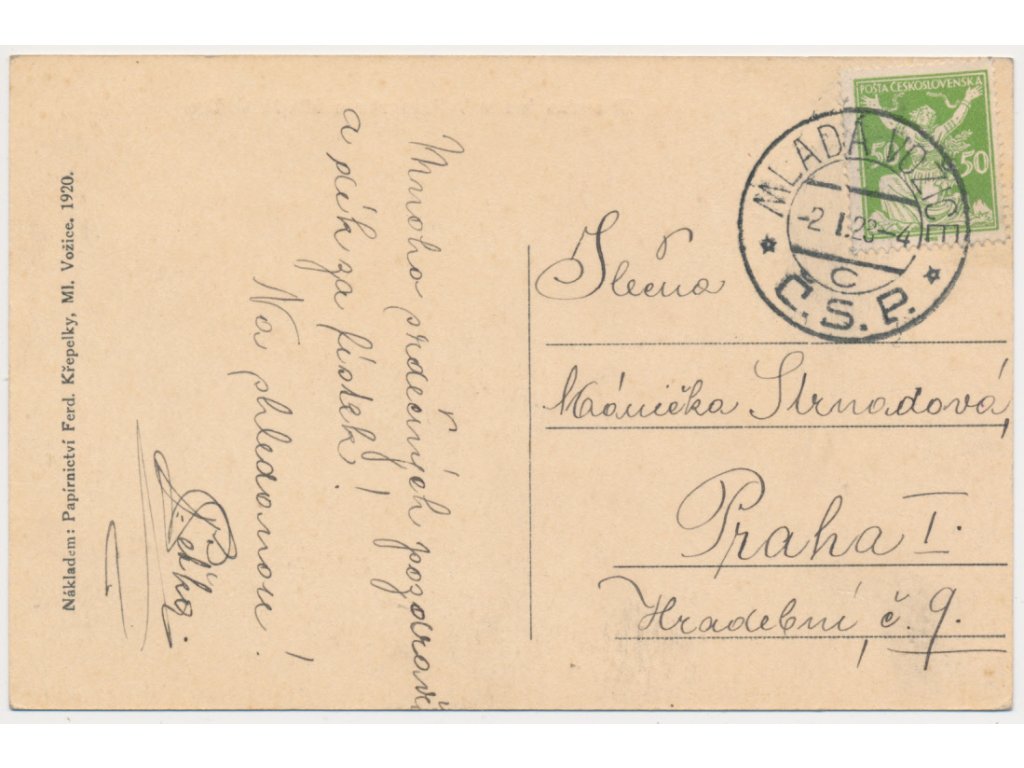 Mnoho srdečných pozdravů
a dík za lístek!
Na shledanou!
Nákladem: Papírnictví Ferd. Křepelky, Ml. Vožice. 1920.
POŠTA ČESKOSLOVENSKÁ
50 50
MLADÁ VOŽICE
-2 I 23-4
C
Č.S.P.
Slečna
Mánička Strnadová,
Praha I.
Hradební, č. 9.